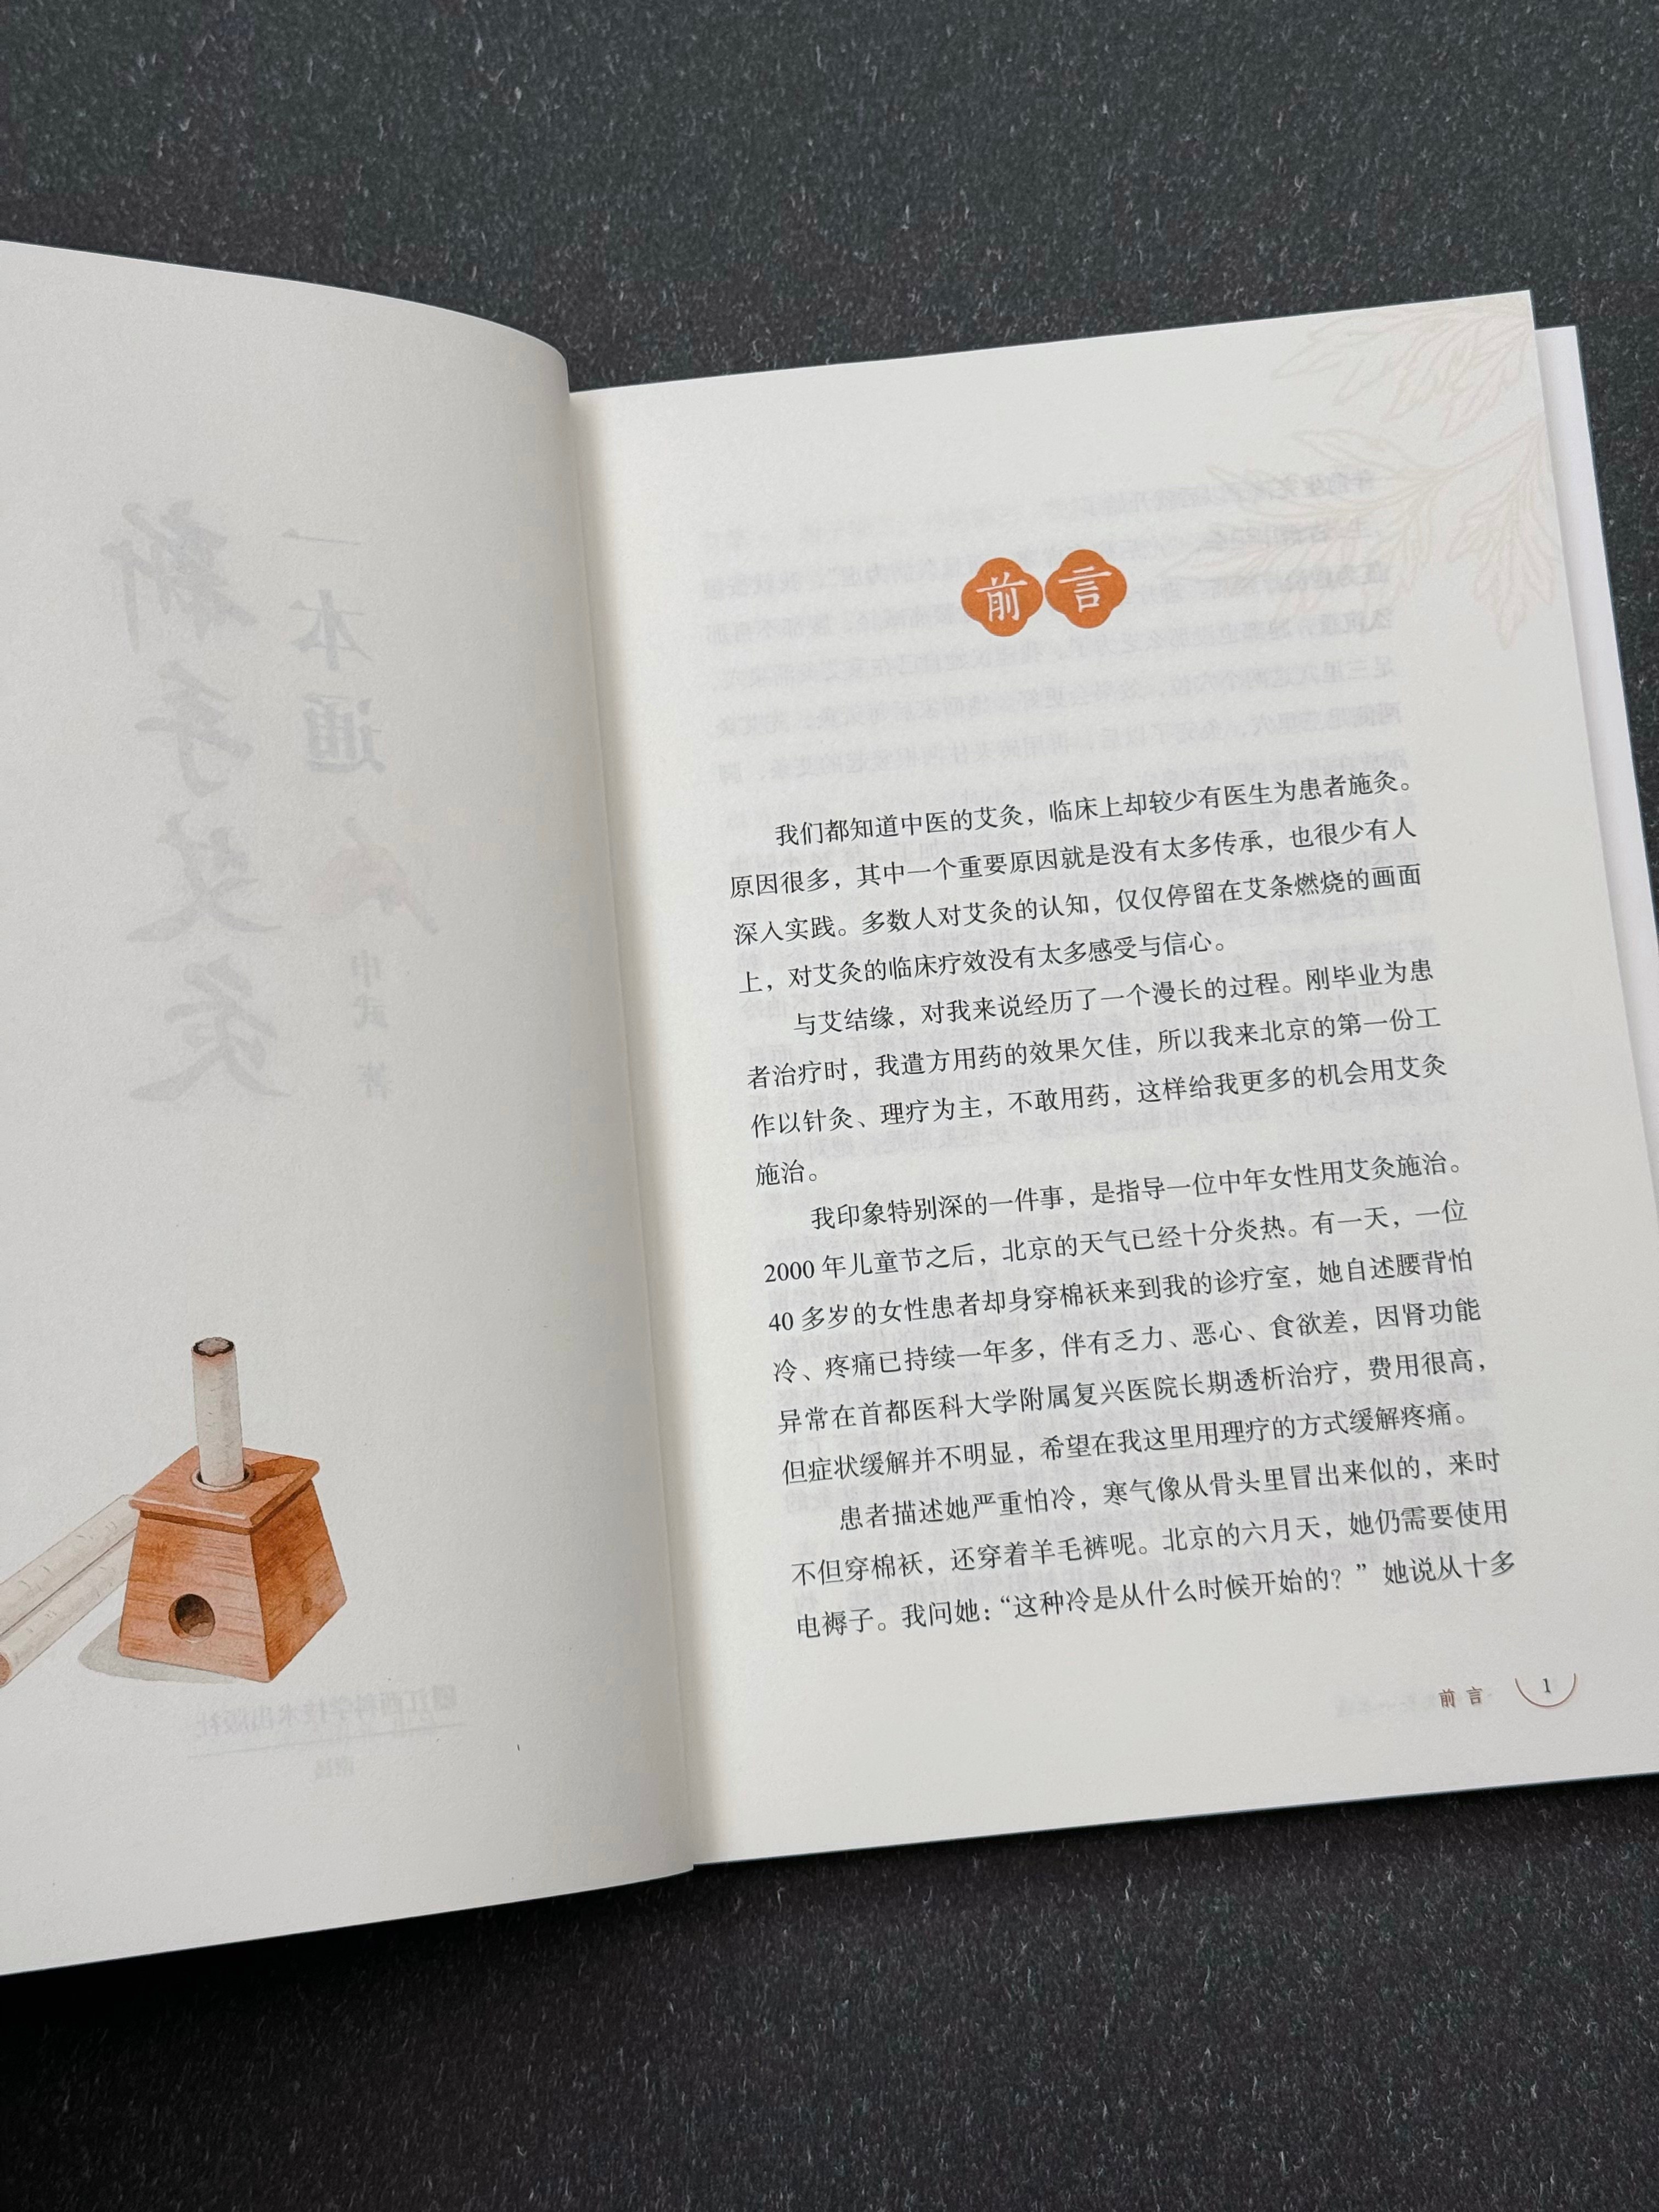 新手艾灸
一本通
申武 著
江西科学技术出版社
前言
我们都知道中医的艾灸，临床上却较少有医生为患者施灸。
原因很多，其中一个重要原因就是没有太多传承，也很少有人
深入实践。多数人对艾灸的认知，仅仅停留在艾条燃烧的画面
上，对艾灸的临床疗效没有太多感受与信心。
与艾结缘，对我来说经历了一个漫长的过程。刚毕业为患
者治疗时，我遣方用药的效果欠佳，所以我来北京的第一份工
作以针灸、理疗为主，不敢用药，这样给我更多的机会用艾灸
施治。
我印象特别深的一件事，是指导一位中年女性用艾灸施治。
2000 年儿童节之后，北京的天气已经十分炎热。有一天，一位
40 多岁的女性患者却身穿棉袄来到我的诊疗室，她自述腰背怕
冷、疼痛已持续一年多，伴有乏力、恶心、食欲差，因肾功能
异常在首都医科大学附属复兴医院长期透析治疗，费用很高，
但症状缓解并不明显，希望在我这里用理疗的方式缓解疼痛。
患者描述她严重怕冷，寒气像从骨头里冒出来似的，来时
不但穿棉袄，还穿着羊毛裤呢。北京的六月天，她仍需要使用
电褥子。我问她：“这种冷是从什么时候开始的？” 她说从十多
前言 1